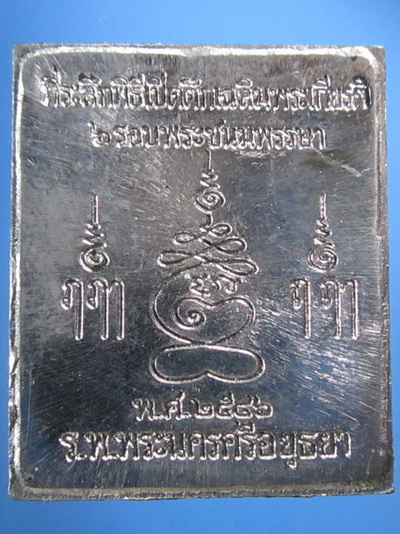 ที่ระลึกพิธีเปิดตึกเฉลิมพระเกียรติ
๖ รอบพระชนมพรรษา
พ.ศ.๒๕๔๖
ร.พ.พระนครศรีอยุธยา